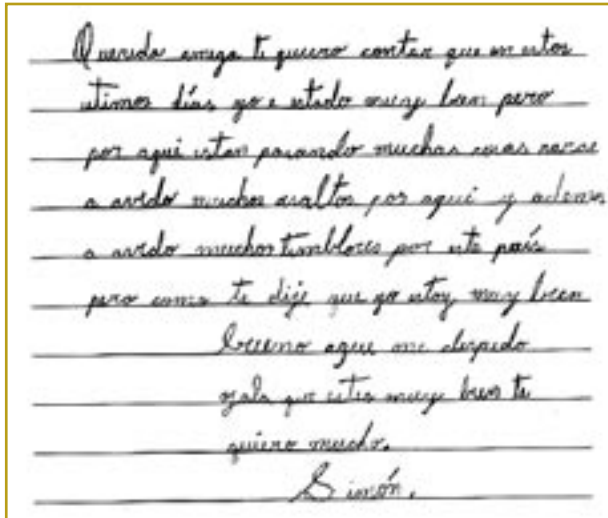 Querida amiga te quiero contar que en estos
utimos días yo e estado muy bien pero
por aqui estan pasando muchas cosas
a avido muchos asaltos por aqui y ademas
a avido muchos temblores por este país
pero como te dije que yo estoy muy bien
bueno aque me despido
ojala que estes muy bien te
quiero mucho.
Simón.